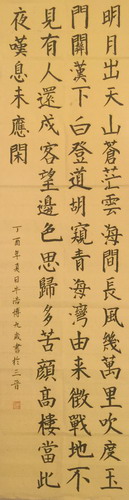 明月出天山蒼茫雲海間長風幾萬里吹度玉
門關漢下白登道胡窺青海灣由來徵戰地不
見有人還戍客望邊色思歸多苦顏高樓當此
夜嘆息未應閑
丁酉年夏日牛浩博九歲書於三晉